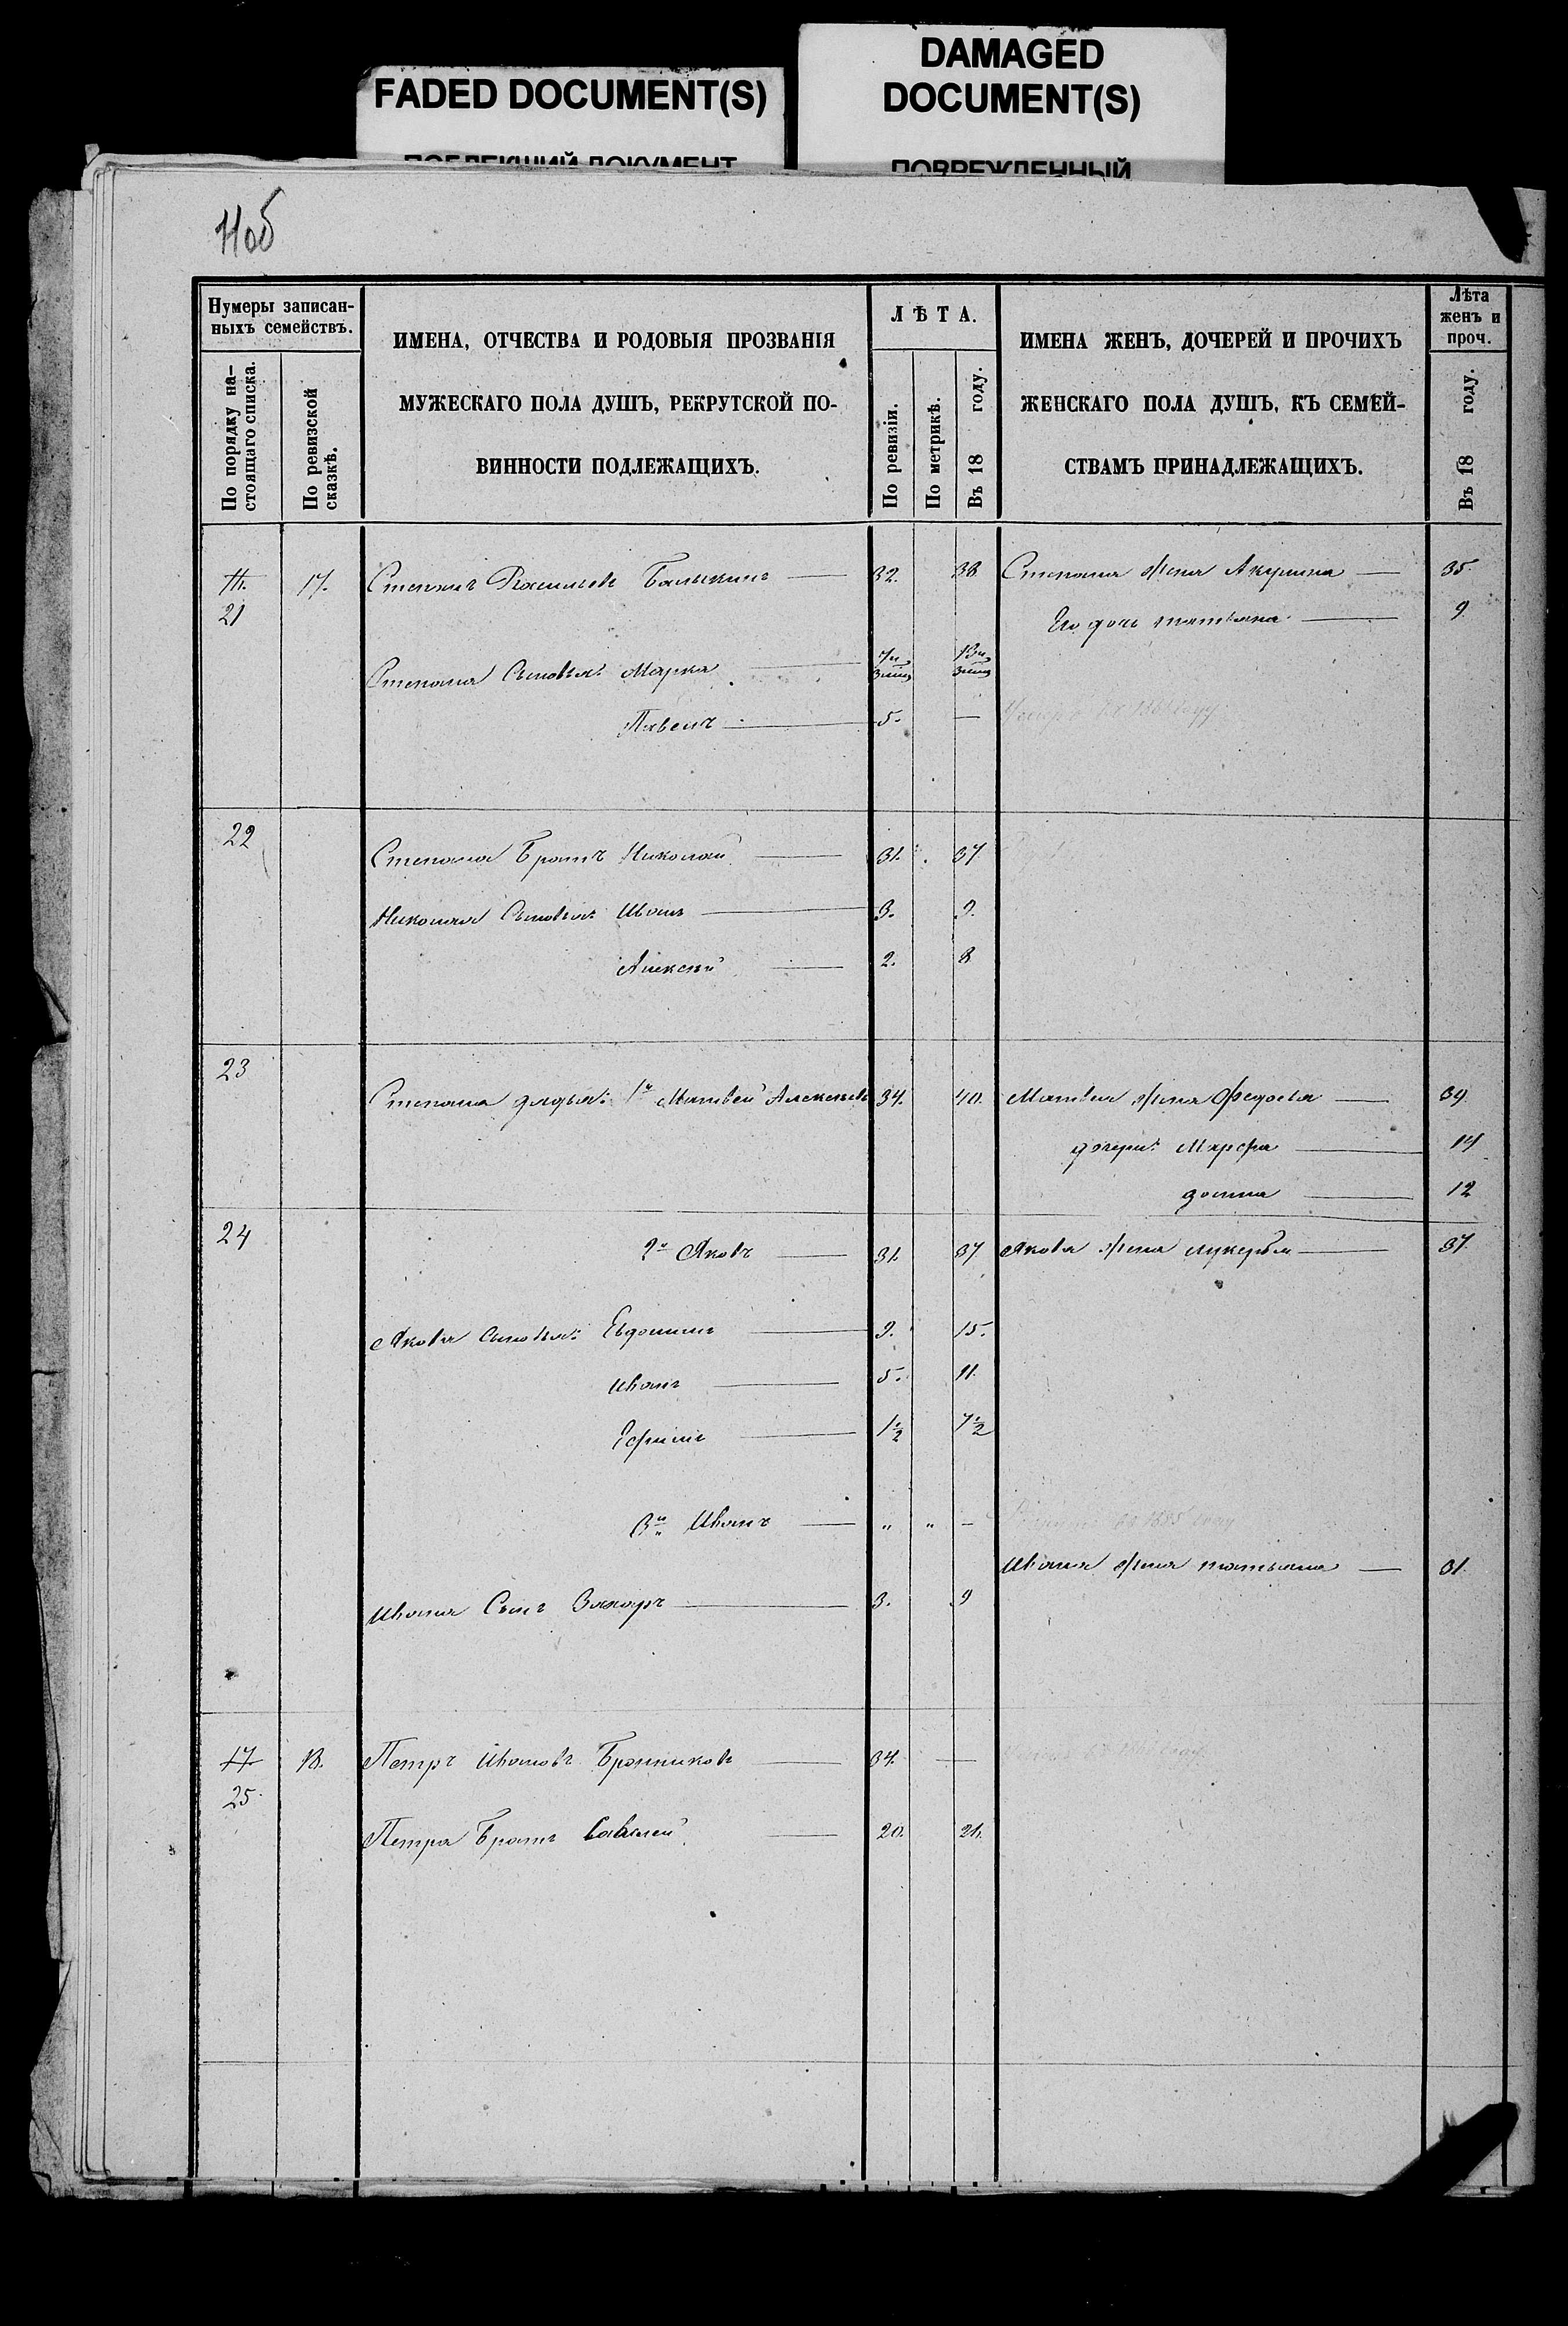 FADED DOCUMENT(S)
DAMAGED
DOCUMENT(S)
ПОБЛЕКШИЙ ДОКУМЕНТ
ПОВРЕЖДЕННЫЙ
Нумеры записан-
ныхъ семействъ.
По порядку на-
стоящаго списка.
По ревизской
сказкѣ.
ИМЕНА, ОТЧЕСТВА И РОДОВЫЯ ПРОЗВАНІЯ
МУЖЕСКАГО ПОЛА ДУШЪ, РЕКРУТСКОЙ ПО-
ВИННОСТИ ПОДЛЕЖАЩИХЪ.
ЛѢТА.
По ревизіи.
По метрикѣ.
Въ 18 году.
ИМЕНА ЖЕНЪ, ДОЧЕРЕЙ И ПРОЧИХЪ
ЖЕНСКАГО ПОЛА ДУШЪ, КЪ СЕМЕЙ-
СТВАМЪ ПРИНАДЛЕЖАЩИХЪ.
Лѣта
женъ и
проч.
Въ 18 году.
17. Степанъ Васильевъ 32. 38 Степана жена Акулина 35.
21 Его дочь татьяна 9
Степана Сыновья: Марка 7 и 13 и
Павелъ 5. —
22 Степана Братъ Николай 31. 37.
Николая Сыновья: Иванъ 3. 9.
Алексей 2. 8
23 Степана дядья: 1й Матвей Алексеевъ 34. 40. Матвея жена Федосья 39
дочери: Марфа 14
домна 12
24 2й Яковъ 31. 37 Якова жена лукерья 37.
Якова сыновья: Евдокимъ 9. 15.
Иванъ 5. 11.
Ефимъ 1½ 7½
3й Иванъ " " — 1855 году
Ивана жена татьяна 31
Ивана Сынъ Захаръ 3. 9
17 18. Петръ Ивановъ Бронниковъ 34. —
25 Петра Братъ Савелей 20. 26.